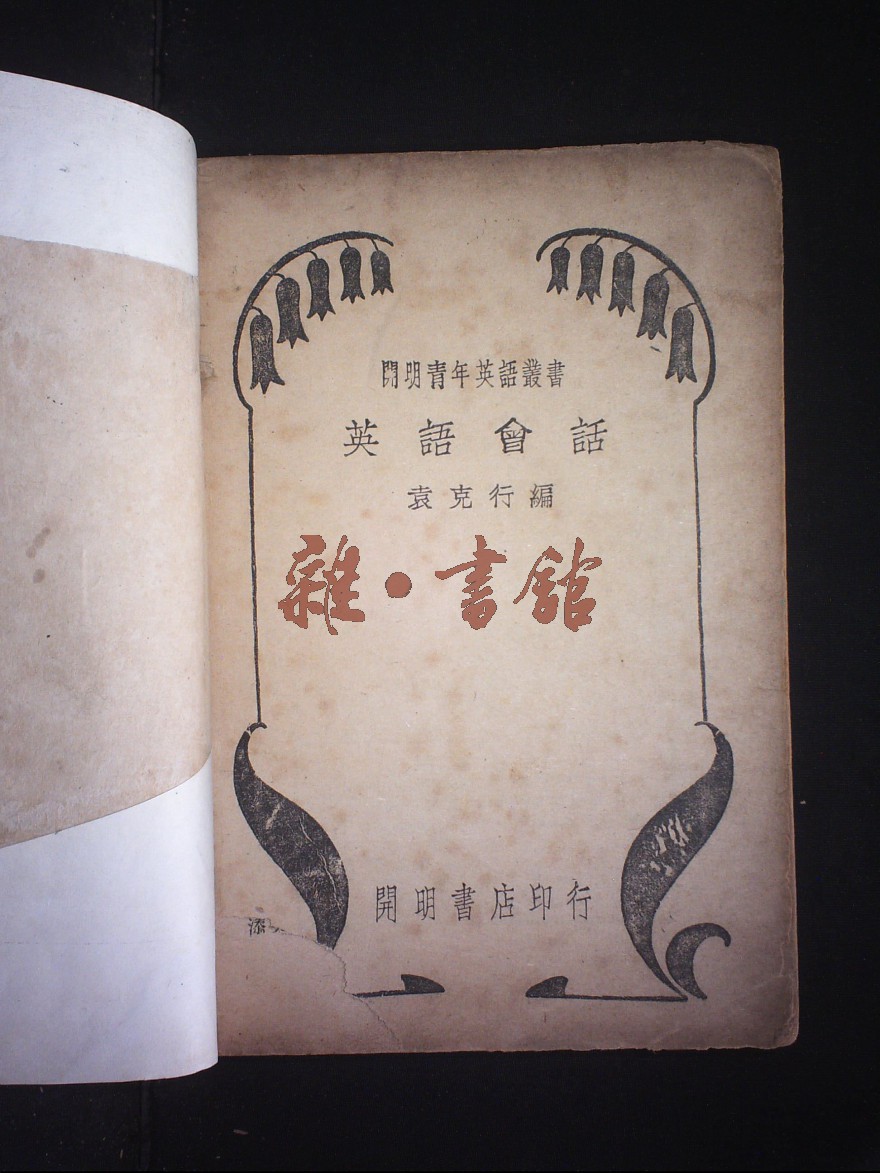 開明青年英語叢書
英語會話
袁克行編
雜·書館
開明書店印行
添